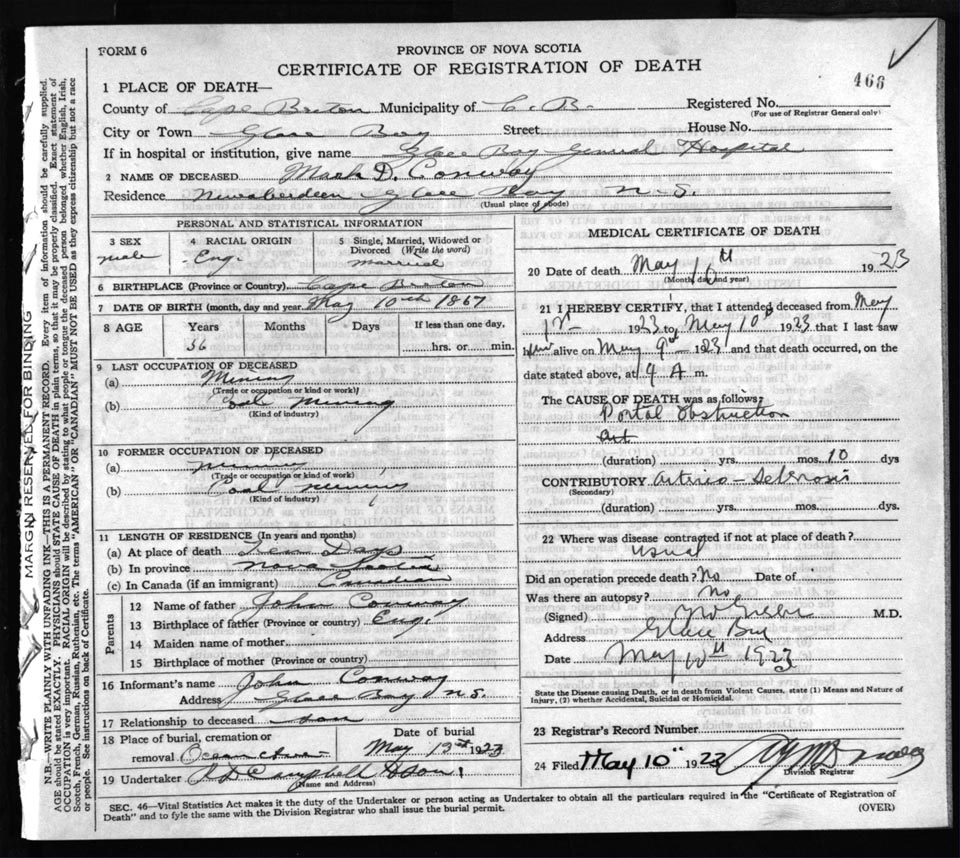 FORM 6
PROVINCE OF NOVA SCOTIA
CERTIFICATE OF REGISTRATION OF DEATH
468
1 PLACE OF DEATH—
County of Cape Breton Municipality of C. B. Registered No.
(For use of Registrar General only)
City or Town Glace Bay Street House No.
If in hospital or institution, give name Glace Bay General Hospital
2 NAME OF DECEASED Mark D. Conway
Residence Newaberdeen Glace Bay N. S.
(Usual place of abode)
PERSONAL AND STATISTICAL INFORMATION
3 SEX
male
4 RACIAL ORIGIN
Eng.
5 Single, Married, Widowed or
Divorced (Write the word)
Married
6 BIRTHPLACE (Province or Country) Cape Breton
7 DATE OF BIRTH (month, day and year May 10th 1867
8 AGE Years Months Days If less than one day,
56 hrs. or min.
9 LAST OCCUPATION OF DECEASED
(a) Mining
(Trade or occupation or kind or work)
(b) Coal Mining
(Kind of industry)
10 FORMER OCCUPATION OF DECEASED
(a) Mining
(Trade or occupation or kind of work)
(b) Coal Mining
(Kind of industry)
11 LENGTH OF RESIDENCE (In years and months)
(a) At place of death Few Days
(b) In province Nova Scotia
(c) In Canada (if an immigrant) Canadian
Parents
12 Name of father John Conway
13 Birthplace of father (Province or country) Eng.
14 Maiden name of mother
15 Birthplace of mother (Province or country)
16 Informant's name John Conway
Address Glace Bay N. S.
17 Relationship to deceased Son
18 Place of burial, cremation or
removal
Date of burial
May 12th 1923
19 Undertaker Campbell
(Name and Address)
MEDICAL CERTIFICATE OF DEATH
20 Date of death May 10th 1923
(Month, day and year)
21 I HEREBY CERTIFY, that I attended deceased from May
1st 1923 to May 10th 1923 that I last saw
him alive on May 9th 1923 and that death occurred, on the
date stated above, at 9 A m.
The CAUSE OF DEATH was as follows:
Portal obstruction
(duration) yrs. mos. 10 dys
CONTRIBUTORY Arterio-Sclerosis
(Secondary)
(duration) yrs. mos. dys.
22 Where was disease contracted if not at place of death?
usual
Did an operation precede death? No Date of
Was there an autopsy? No
(Signed) M.D.
Address Glace Bay
Date May 10th 1923
State the Disease causing Death, or in death from Violent Causes, state (1) Means and Nature of
Injury, (2) whether Accidental, Suicidal or Homicidal.
23 Registrar's Record Number
24 Filed May 10" 1923
Division Registrar
SEC. 46—Vital Statistics Act makes it the duty of the Undertaker or person acting as Undertaker to obtain all the particulars required in the "Certificate of Registration of
Death" and to fyle the same with the Division Registrar who shall issue the burial permit. (OVER)
MARGIN RESERVED FOR BINDING
N.B.—WRITE PLAINLY WITH UNFADING INK—THIS IS A PERMANENT RECORD. Every item of information should be carefully supplied.
AGE should be stated EXACTLY. PHYSICIANS should STATE CAUSE OF DEATH in plain terms, so that it may be properly classified. Exact statement of
OCCUPATION is very important. RACIAL ORIGIN will be described by stating to what people or tongue the deceased person belonged, whether English, Irish,
Scotch, French, German, Russian, Ruthenian, etc. The terms "AMERICAN" OR "CANADIAN" MUST NOT BE USED as they express citizenship but not a race
or people. See instructions on back of Certificate.